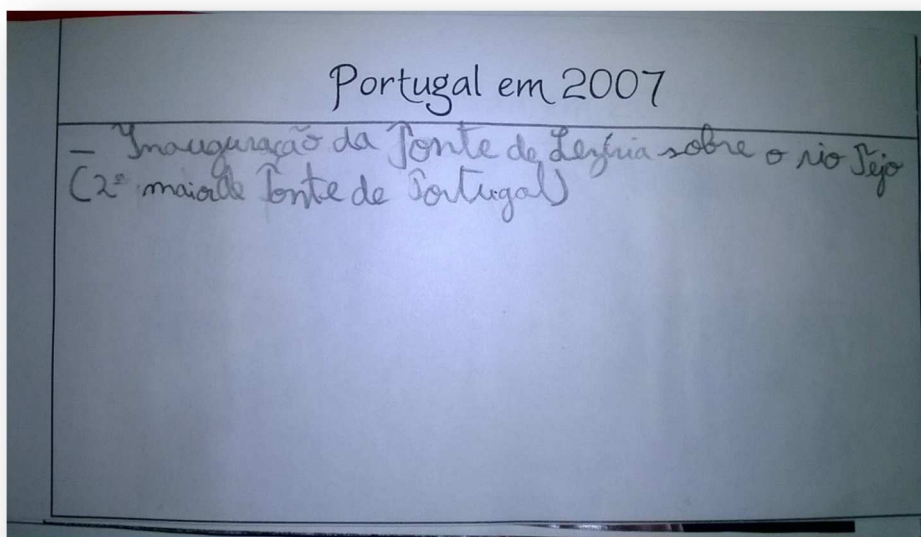 Portugal em 2007
— Inauguração da Ponte da Lezíria sobre o rio Tejo
(2ª maior de Ponte de Portugal)